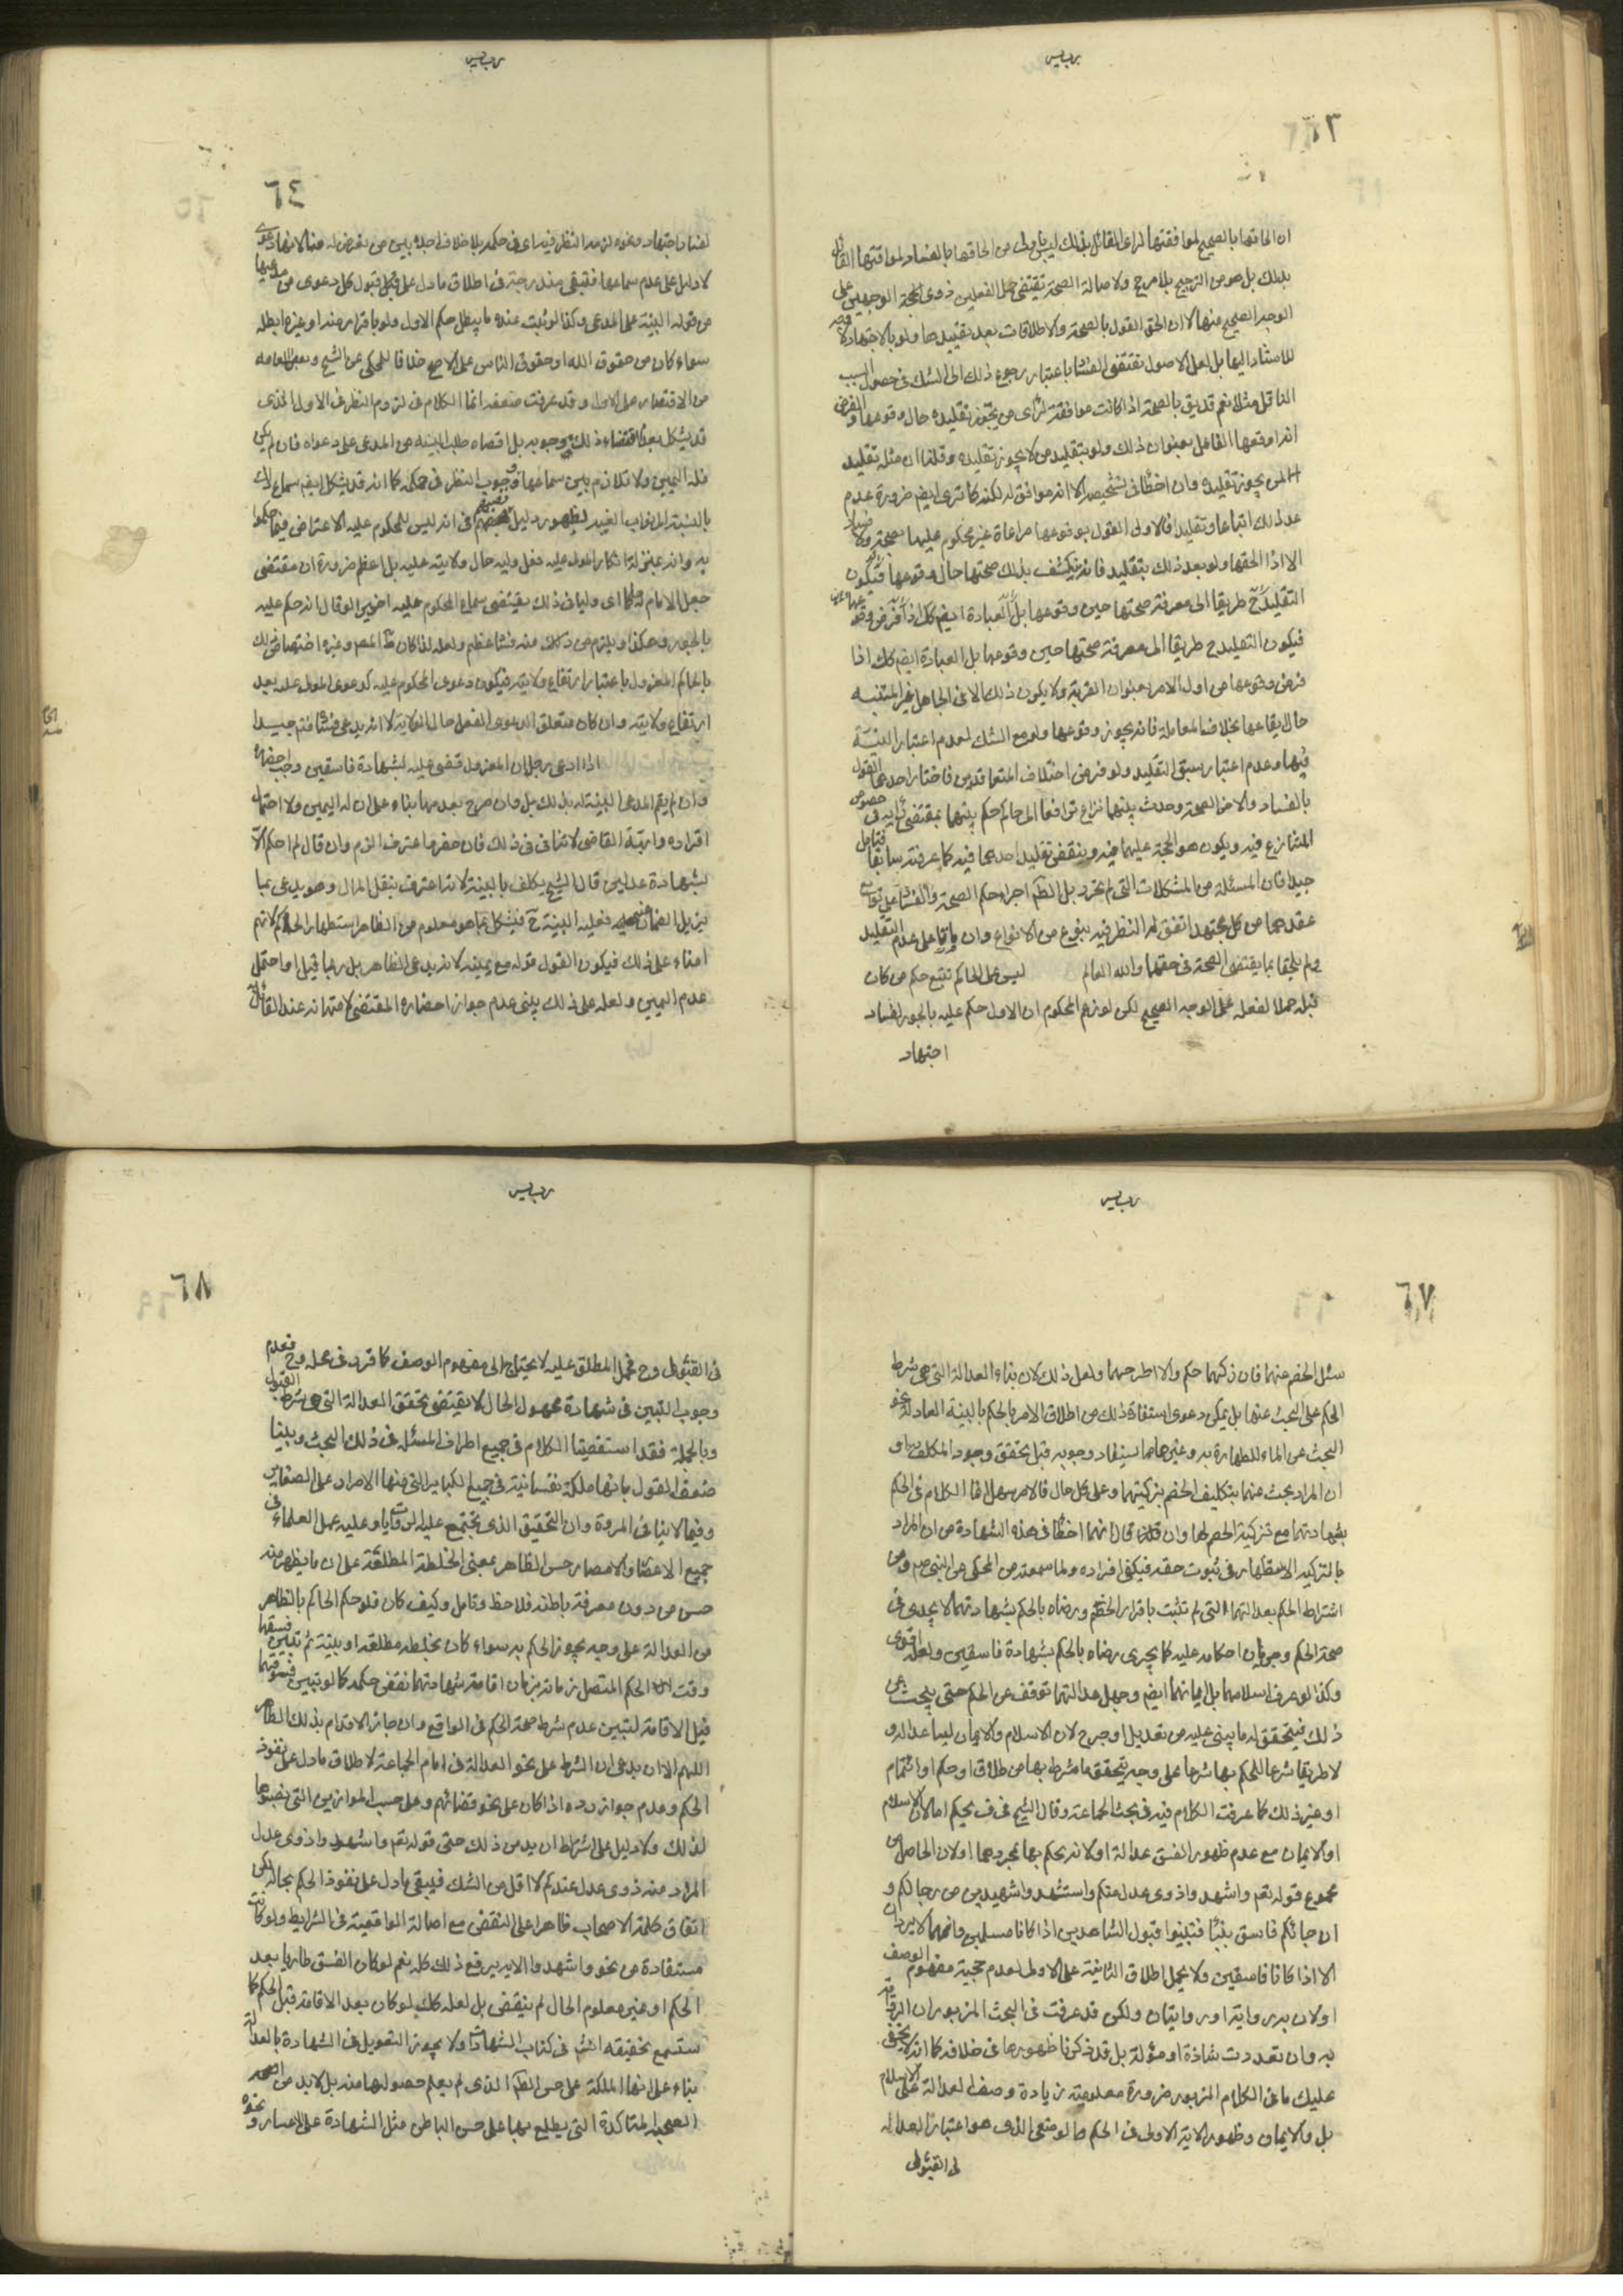 ان الحاقها بالصحيح لموافقتها لراى القائل بذلك ليس باولى من الحاقها بالفساد لموافقتها القائل
بذلك بل هو من الترجيح بلا مرجح ولاصالة الصحة تقتضى حمل الفعلين ذوى الوجهين على
الوجه الصحيح منهما لا ان الحق القول بالصحة والاطلاقات بعد تقييدها ولو بالاجتهاد لا وجه
للاستناد اليها بل لعل الاصول تقتضى الفساد باعتبار رجوع ذلك الى الشك فى حصول السبب
الناقل مثلا نعم قد يق بالصحة اذا كانت موافقة لراى من يجوز تقليده حال وقوعها والفرض
انه اوقعها الفاعل بعنوان ذلك ولو بتقليد من لا يجوز تقليده وقلنا ان مثله تقليد
لمن يجوز تقليده وان اخطأ فى تشخيصه الا انه موافق له لكنه كما ترى ايضا ضرورة عدم
عد ذلك اتباعا وتقليدا فالاولى القول بوقوعها مراعاة غير محكوم عليها بصحة ولا فساد
الا اذا الحقها ولو بعد ذلك بتقليد فانه ينكشف بذلك صحتها حال وقوعها فيكون
التقليد ح طريقا الى معرفة صحتها حين وقوعها بل العبادة ايضا كك اذا فرض وقوعها
فيكون التقليد ح طريقا الى معرفة صحتها حين وقوعها بل العبادة ايضا كك اذا
فرض وقوعها من اول الامر بعنوان القربة ولا يكون ذلك الا فى الجاهل غير المتنبه
حال ايقاعها بخلاف المعاملة فانه يجوز وقوعها ولو مع الشك لعدم اعتبار النية
فيها وعدم اعتبار سبق التقليد ولو فرض اختلاف المتعاقدين فاختار احدهما القول
بالفساد والاخر الصحة وحدث بينهما نزاع ترافعا الى حاكم حكم بينهما بمقتضى رايه فى خصوص
المتنازع فيه ويكون هو الحجة عليهما فيه وينقض تقليد احدهما فيه كما عرفته سابقا فتامل
جيدا فان المسئلة من المشكلات التى لم تحرر بل الظ اجراء حكم الصحة والفساد على
عقدهما من كل مجتهد اتفق له النظر فيه بنوع من الانواع وان بقيا على عدم التقليد
ولم يلحقا بما يقتضى الصحة فى حقهما والله العالم ليس على الحاكم تتبع حكم من كان
قبله حملا لفعله على الوجه الصحيح لكن لو زعم المحكوم ان الاول حكم عليه بالجور لفساد
اجتهاد
٦٤
لفساد اجتهاد ونحوه لزمه النظر فيه اى فى حكمه بلا خلاف اجده بين من تعرض له منا لانها دعوى
لا دليل على عدم سماعها فتبقى مندرجة فى اطلاق ما دل على قبول كل دعوى من مدعيها
من قوله البينة على المدعى وكذا لو ثبت عنده ما يبطل حكم الاول ولو باقراره عنده او غيره ابطله
سواء كان من حقوق الله او حقوق الناس على الاصح خلافا للمحكى عن الشيخ وبعض العامه
من الاقتصار على الاول وقد عرفت ضعفه انما الكلام فى لزوم النظر فى الاول الذى
قد يشكل بعدم اقتضاء ذلك وجوبه بل اقصاه طلب البينه من المدعى على دعواه فان لم يكن
فله اليمين ولا تلازم بين سماعها ووجوب النظر فى حكمه كما انه قد يشكل ايضا سماع ذلك
بالنسبة الى نواب الغيبة لظهور دليل نصبهم فى انه ليس للمحكوم عليه الاعتراض فيما حكموا
به وانه بمنزلة انكار المولى عليه فعل وليه حال ولايته عليه بل اعظم ضرورة ان مقتضى
جعل الامام له حاكما اى وليا فى ذلك يقتضى سماع المحكوم عليه اخرى لو قال انه حكم عليه
بالجور وهكذا ويلزم من ذلك منه فساد عظيم ولعله لذا كان ظ المص وغيره اختصاص ذلك
بالحاكم المعزول باعتبار ارتفاع ولايته فيكون دعوى المحكوم عليه كدعوى المولى عليه بعد
ارتفاع ولايته وان كان متعلق الدعوى الفعل حال الولاية لانه يدعى فسادا فتم جيدا
اذا ادعى رجل ان المعزول قضى عليه بشهادة فاسقين وجب احضاره
وان لم يقم المدعى البينة له بذلك بل وان صرح بعدمها بناء على ان له اليمين ولاحتمال
اقراره وابهة القاضى لا تنافى فى ذلك فان حضر واعترف الزم وان قال لم احكم الا
بشهادة عدلين قال الشيخ يكلف بالبينة لانه اعترف بنقل المال وهو يدعى بما
يزيل الضمان عنه فعليه البينة ح فيشكل بما هو معلوم من الظاهر استظهار الحكام لانهم
امناء على ذلك فيكون القول قوله مع يمينه لانه يدعى الظاهر بل ربما قيل او احتمل
عدم اليمين ولعله على ذلك يبنى عدم جواز احضاره المقتضى لامتهانه عند القائل
٦٧
سئل الخصم عنهما فان زكيهما حكم والا طرحهما ولعل ذلك لان بناء العدالة التى هى شرط
الحكم على البحث عنها بل يمكن دعوى استفادة ذلك من اطلاق الامر بالحكم بالبينة العادلة نحو
البحث عن الماء للطهارة به وغيرها مما يستفاد وجوبه قبل تحقق وجود المكلف به او
ان المراد بحث عنهما بتكليف الخصم بتزكيتهما وعلى كل حال فالامر سهل انما الكلام فى الحكم
بشهادتهما مع تزكية الخصم لهما وان قال انهما اخطأ فى هذه الشهادة من ان المراد
بالتزكية الاستظهار فى ثبوت حقه فيكفى اقراره ولما سمعته من المحكى عن النبى ص ومن
اشتراط الحكم بعدالتهما التى لم تثبت باقرار الخصم ورضاه بالحكم بشهادتهما لا يجدى فى
صحة الحكم وجريان احكامه عليه كما لا يجرى رضاه بالحكم بشهادة فاسقين ولعله اقوى
وكذا لو عرف اسلامهما بل ايمانهما ايضا وجهل عدالتهما توقف عن الحكم حتى يبحث عن
ذلك فيتحقق له ما يبنى عليه من تعديل او جرح لان الاسلام والايمان ليسا عدالة و
لا طريقا شرعا للحكم بها شرعا على وجه يتحقق ما شرط بها من طلاق او حكم او ائتمام
او غير ذلك كما عرفت الكلام فيه فى بحث الجماعة وقال الشيخ فى ف يحكم اما لان الاسلام
او الايمان مع عدم ظهور الفسق عدالة او لانه يحكم بها بمجردهما او لان الحاصل من
مجموع قوله تعم واشهدوا ذوى عدل منكم واستشهدوا شهيدين من رجالكم و
ان جائكم فاسق بنبأ فتبينوا قبول الشاهدين اذا كانا مسلمين وانهما لا يردان
الا اذا كانا فاسقين ولا يحمل اطلاق الثانية على الاولى لعدم حجية مفهوم الوصف
او لان به رواية او روايتان ولكن قد عرفت فى البحث المزبور ان الرواية
به وان تعددت شاذة او مؤلة بل قد ذكرنا ظهورها فى خلافه كما انه لا يخفى
عليك ما فى الكلام المزبور ضرورة معلومية زيادة وصف العدالة على الاسلام
بل والايمان وظهور الاية الاولى فى الحكم الوضعى الذى هو اعتبار العدالة
فى القبول
٦٨
فى القبول وح فحمل المطلق عليه لا يحتاج الى مفهوم الوصف كما قرر فى محله وح فعدم
وجوب التبين فى شهادة مجهول الحال لا يقتضى تحقق العدالة التى هى شرط القبول
وبالجملة فقد استقصينا الكلام فى جميع اطراف المسئلة فى ذلك البحث وبينا
ضعف القول بانها ملكة نفسانية فى جميع الكبائر التى منها الاصرار على الصغائر
وفيما لا ينافى المروة وان التحقيق الذى تجتمع عليه الروايات وعليه عمل العلماء فى
جميع الاعصار والامصار حسن الظاهر بمعنى الخلطة المطلقة على ان ما يظهر منه
حسن من دون معرفة باطنه فلاحظ وتامل وكيف كان فلو حكم الحاكم بالظاهر
من العدالة على وجه يجوز الحكم به سواء كان بخلطة مطلقة او بينة ثم تبين فسقهما
وقت الحكم المتصل زمانه بزمان اقامة شهادتهما نقض حكمه كما لو تبين فسقهما
قبل الاقامة لتبين عدم شرط صحة الحكم فى الواقع وان جاز الاقدام بذلك الظاهر
اللهم الا ان يدعى ان الشرط على نحو العدالة فى امام الجماعة لاطلاق ما دل على نفوذ
الحكم وعدم جواز رده اذا كان على نحو قضائهم وعلى حسب الموازين التى نصبوها
لذلك ولا دليل على اشتراط ازيد من ذلك حتى قوله تعم واشهدوا ذوى عدل
المراد منه ذوى عدل عندكم لا اقل من الشك فيبقى ما دل على نفوذ الحكم بحاله لكن
اتفاق كلمة الاصحاب ظاهرا على النقض مع اصالة الواقعية فى الشرايط ولو كانت
مستفادة من نحو واشهدوا الاية يرفع ذلك كله نعم لو كان الفسق طاريا بعد
الحكم او غير معلوم الحال لم ينقض بل لعله كك لو كان بعد الاقامة قبل الحكم كما
ستسمع تحقيقه انشم فى كتاب الشهادات ولا يجوز التعويل فى الشهادة بالعدالة
بناء على انها الملكة على حسن الظ الذى لم يعلم حصولها منه بل لابد من
الصحبة المتاكدة التى يطلع بها على حسن الباطن مثل الشهادة على الاعسار ونحوه